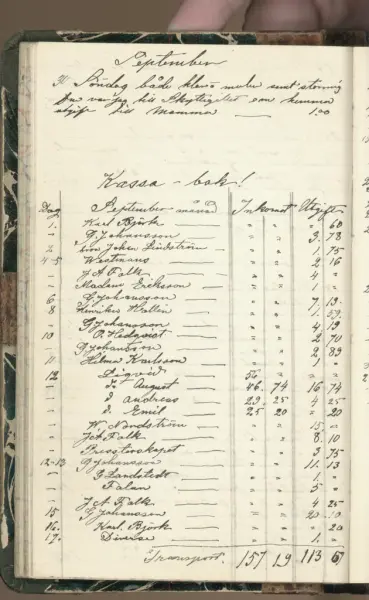 September
30 Söndag både klara moln samt stormig
Jag var på till Skyttegillet som hemma
utgift till Mamma — 1,00
Kassa-bok!
Dag September månad Inkomst Utgift
1. Karl Björk — " " " 60
" G Johansson " " 3. 78
2 Lindström — " " 1. 75
4-5 Westmans — " " 2 16
— J A Falk — " " 4 "
— Madam Eriksson — " " 1 "
6 G Johansson — " " 7. 13
8 Henriks Hallen — " " 1. 59
— G Johansson — " " 4 19
10 P. Hedqvist — " " 2 70
— G Johansson — " " 2 89
11 Hilma Karlsson — " " 1 "
12 Sigvid — 56 "
— d. August — 46. 74 16 74
— d andreas — 29. 25 4 25
— d. Emil — 25 20 " 20
— W. Nordström — " " 15 "
— J A Falk — " " 8. 10
— " " 3 75
12-13 G Johansson — " " 11. 13
— G Landstedt — " " 1. "
— Falan — " " 5 "
— J A Falk — " " 4 25
15 G Johansson — " " 20 10
16. Karl. Björk — " " " 20
17. Diverse — " " 1. "
Transport. 157 19 113 61